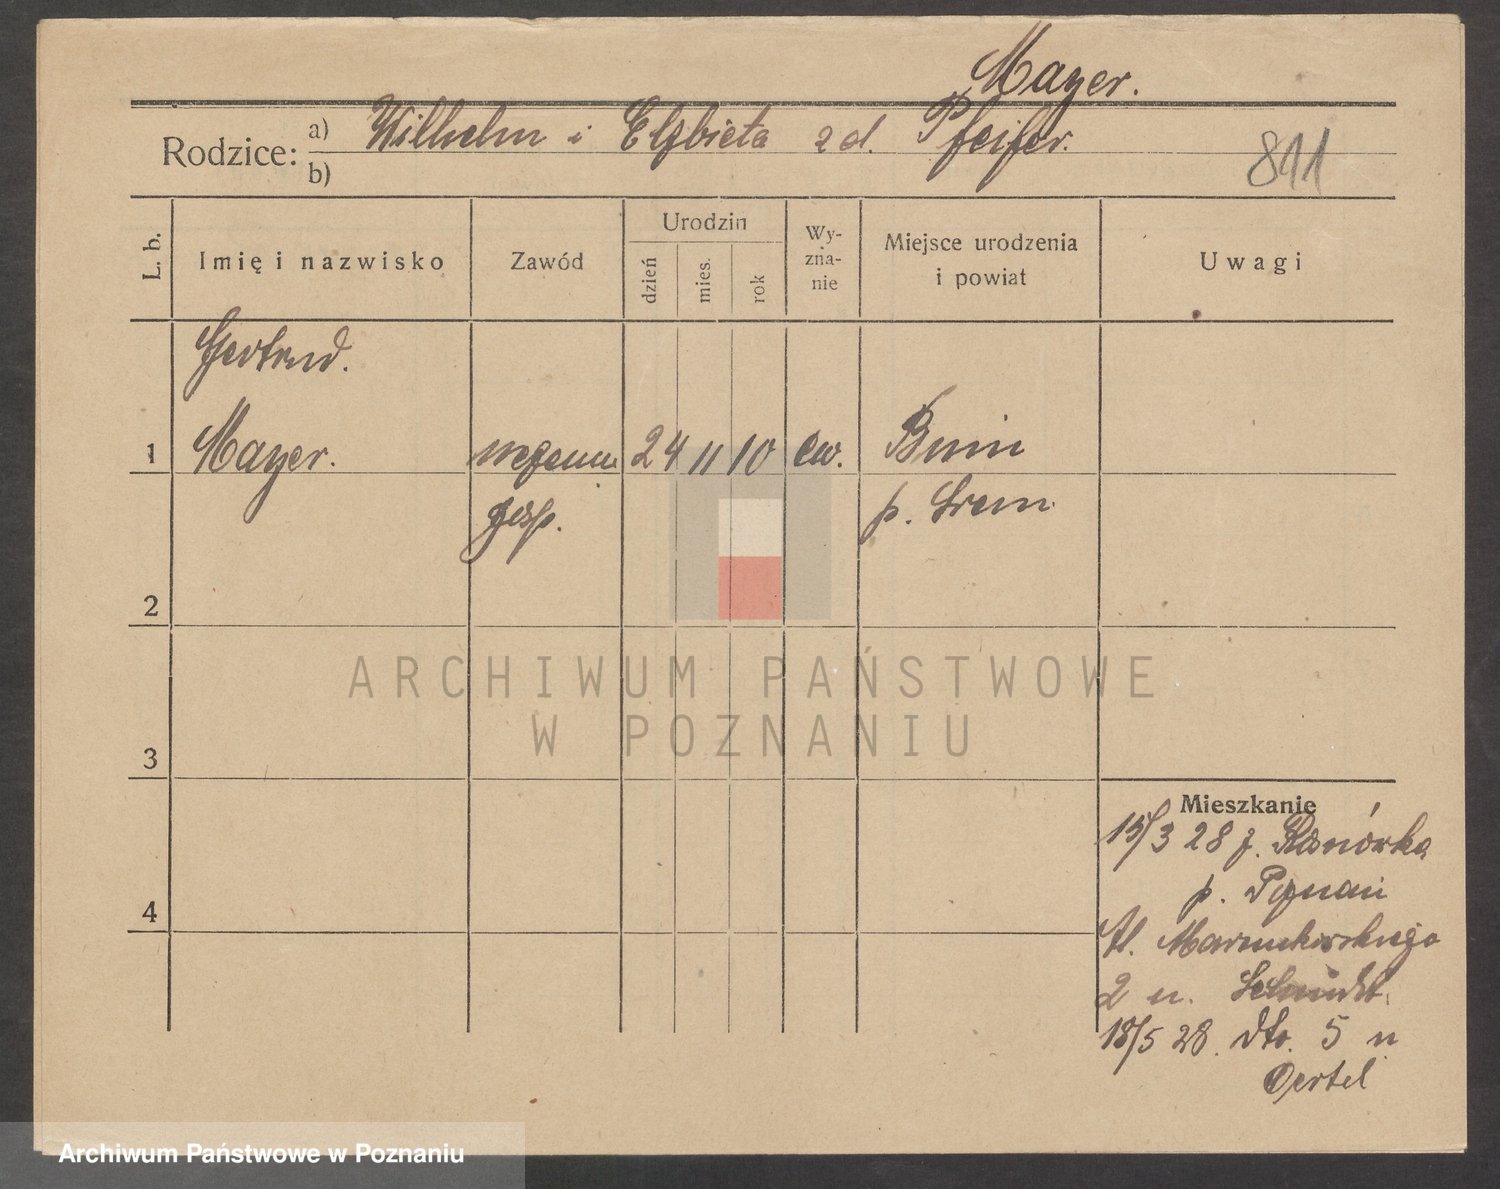 Mayer.
Rodzice: a) Wilhelm i Elżbieta zd. Pfeifer.
b)
811
L. b.
Imię i nazwisko
Zawód
Urodzin
dzień
mies.
rok
Wy-
zna-
nie
Miejsce urodzenia
i powiat
Uwagi
Gertrud.
1 Mayer. 24 11 10 ew. Bnin
gosp. p. Śrem.
2
3
4
ARCHIWUM PAŃSTWOWE
W POZNANIU
Mieszkanie
15/3 28 z.
p. Poznań
Al. Marcinkowskiego
2 u. Schmidt.
18/5 28. dto. 5 u
Oertel
Archiwum Państwowe w Poznaniu